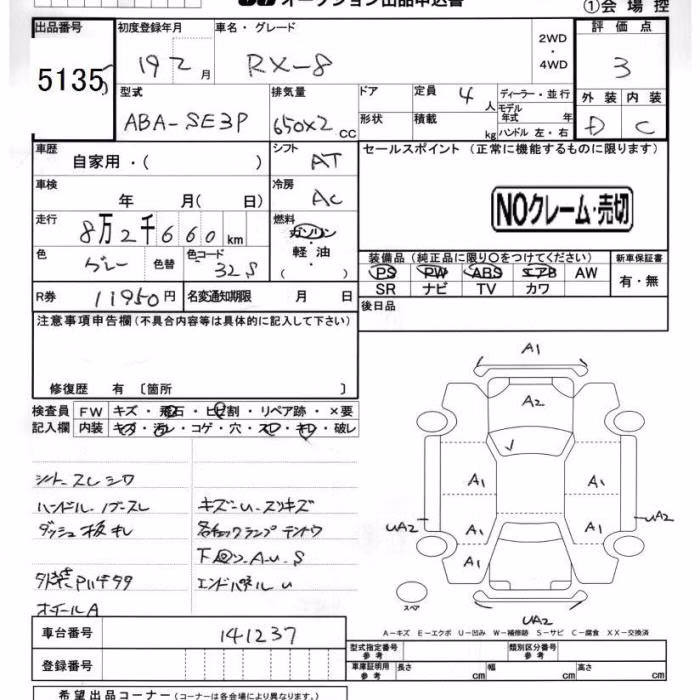 オークション出品申込書
①会場控
出品番号 初度登録年月 車名・グレード 評価点
5135 19 2月 RX-8 2WD・4WD 3
型式 排気量 ドア 定員 4人 ディーラー・並行 外装 内装
ABA-SE3P 650×2 CC 形状 積載 kg モデル年式 年 ハンドル 左・右 D C
車歴 自家用・( ) シフト AT セールスポイント(正常に機能するものに限ります)
車検 年 月( 日) 冷房 AC
NOクレーム・売切
走行 8万2千660km 燃料 ガソリン・軽油・( )
色 グレー 色替 色コード 32S
装備品(純正品に限り○をつけてください) 新車保証書
PS PW ABS エアB AW 有・無
SR ナビ TV カワ
R券 11950円 名変通知期限 月 日
後日品
注意事項申告欄(不具合内容等は具体的に記入して下さい)
修復歴 有〔箇所 〕
検査員 FW キズ・飛石・ヒビ割・リペア跡・×要
記入欄 内装 キズ・汚レ・コゲ・穴・スレ・キレ・破レ
シートスレシワ
ハンドル.ノブスレ キズ-U.スリキズ
ダッシュ板キレ 各チェックランプテントウ
A.U.S
エンドパネルU
ホイールA
A1
A2
A1 A1
UA2 A1 A1 UA2
A1
スペア
UA2
A-キズ E-エクボ U-凹み W-補修跡 S-サビ C-腐食 XX-交換済
車台番号 141237
登録番号
型式指定番号 参考 類別区分番号 参考
車庫証明用 参考 長さ cm 幅 cm 高さ cm
希望出品コーナー(コーナーは各会場により異なります。)